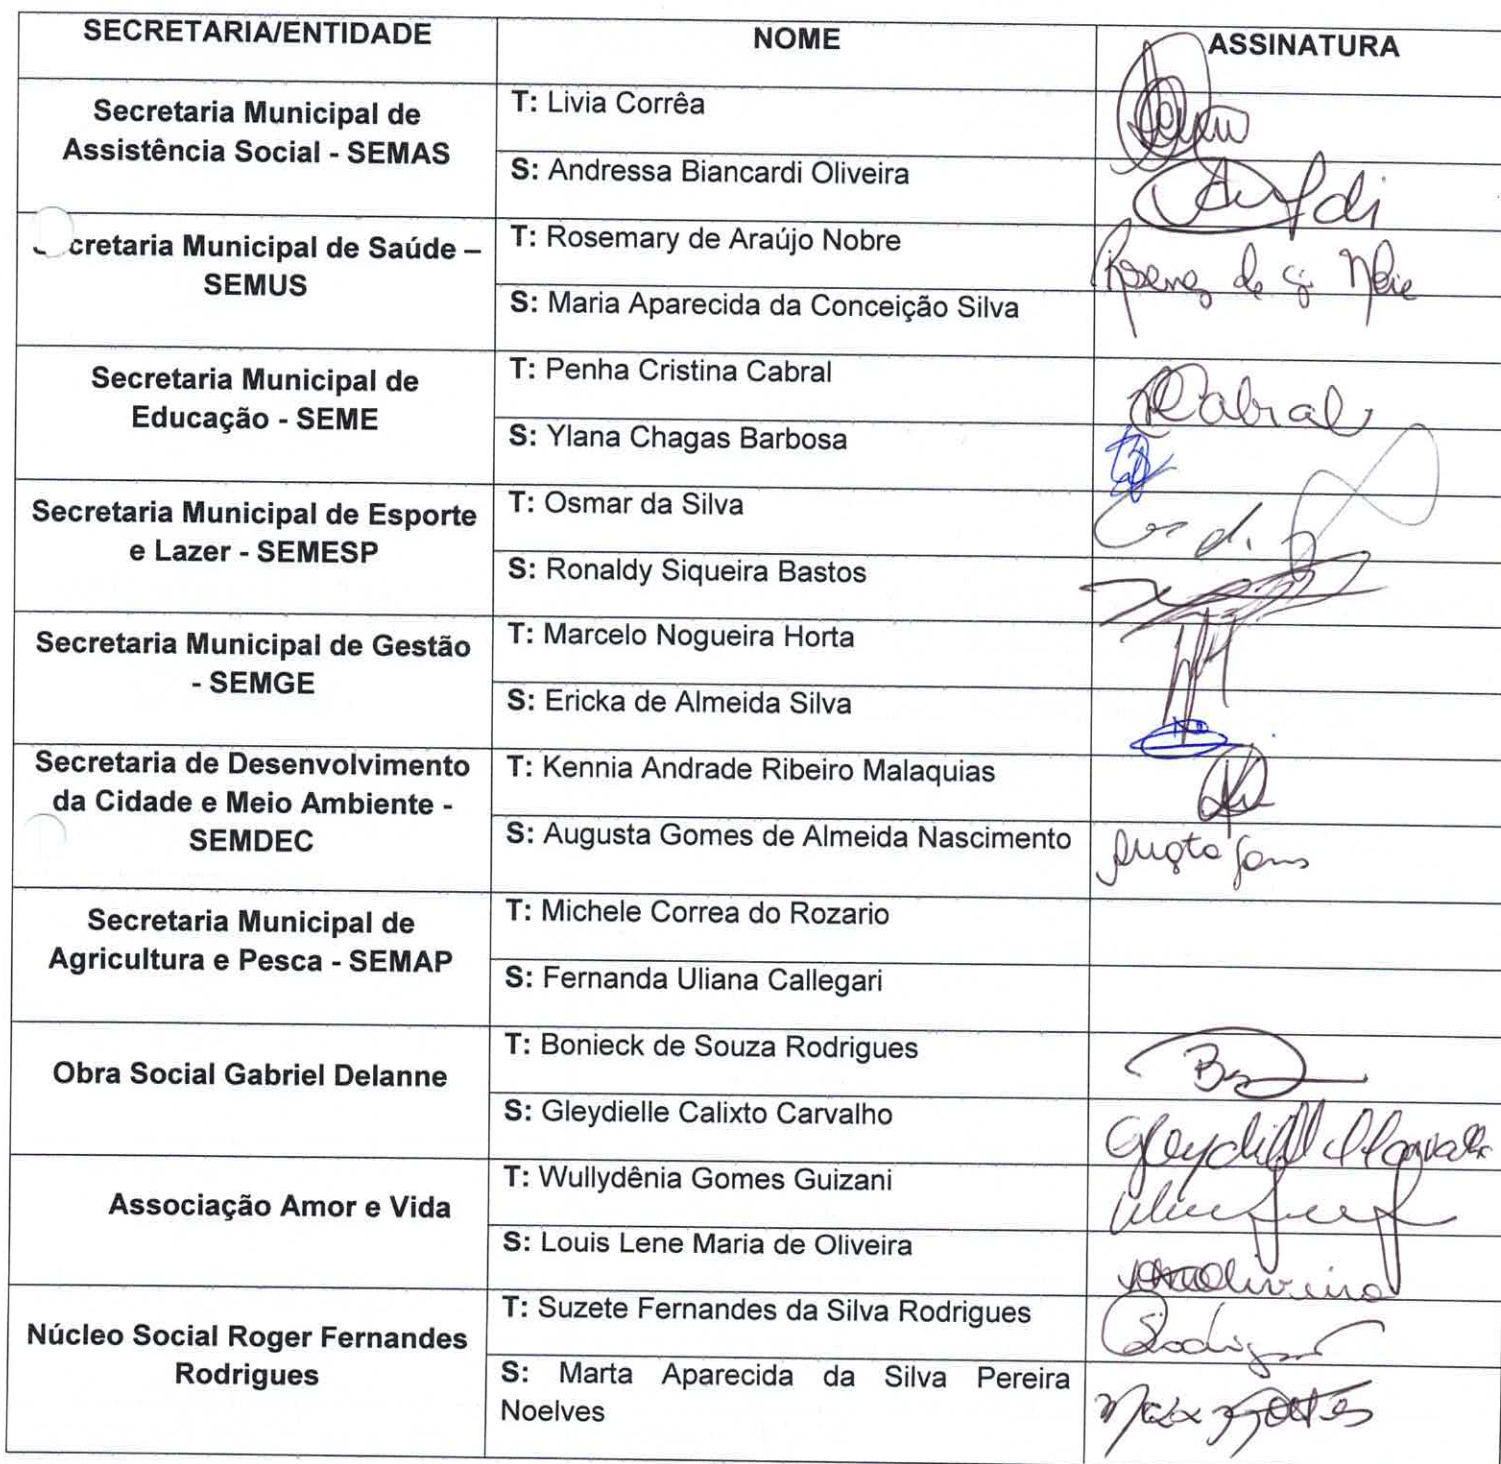 SECRETARIA/ENTIDADE NOME ASSINATURA
Secretaria Municipal de
Assistência Social - SEMAS
T: Livia Corrêa
S: Andressa Biancardi Oliveira
cretaria Municipal de Saúde –
SEMUS
T: Rosemary de Araújo Nobre
S: Maria Aparecida da Conceição Silva
Secretaria Municipal de
Educação - SEME
T: Penha Cristina Cabral
Cabral
S: Ylana Chagas Barbosa
Secretaria Municipal de Esporte
e Lazer - SEMESP
T: Osmar da Silva
S: Ronaldy Siqueira Bastos
Secretaria Municipal de Gestão
- SEMGE
T: Marcelo Nogueira Horta
S: Ericka de Almeida Silva
Secretaria de Desenvolvimento
da Cidade e Meio Ambiente -
SEMDEC
T: Kennia Andrade Ribeiro Malaquias
S: Augusta Gomes de Almeida Nascimento
Secretaria Municipal de
Agricultura e Pesca - SEMAP
T: Michele Correa do Rozario
S: Fernanda Uliana Callegari
Obra Social Gabriel Delanne
T: Bonieck de Souza Rodrigues
S: Gleydielle Calixto Carvalho
Associação Amor e Vida
T: Wullydênia Gomes Guizani
S: Louis Lene Maria de Oliveira
Núcleo Social Roger Fernandes
Rodrigues
T: Suzete Fernandes da Silva Rodrigues
S: Marta Aparecida da Silva Pereira
Noelves